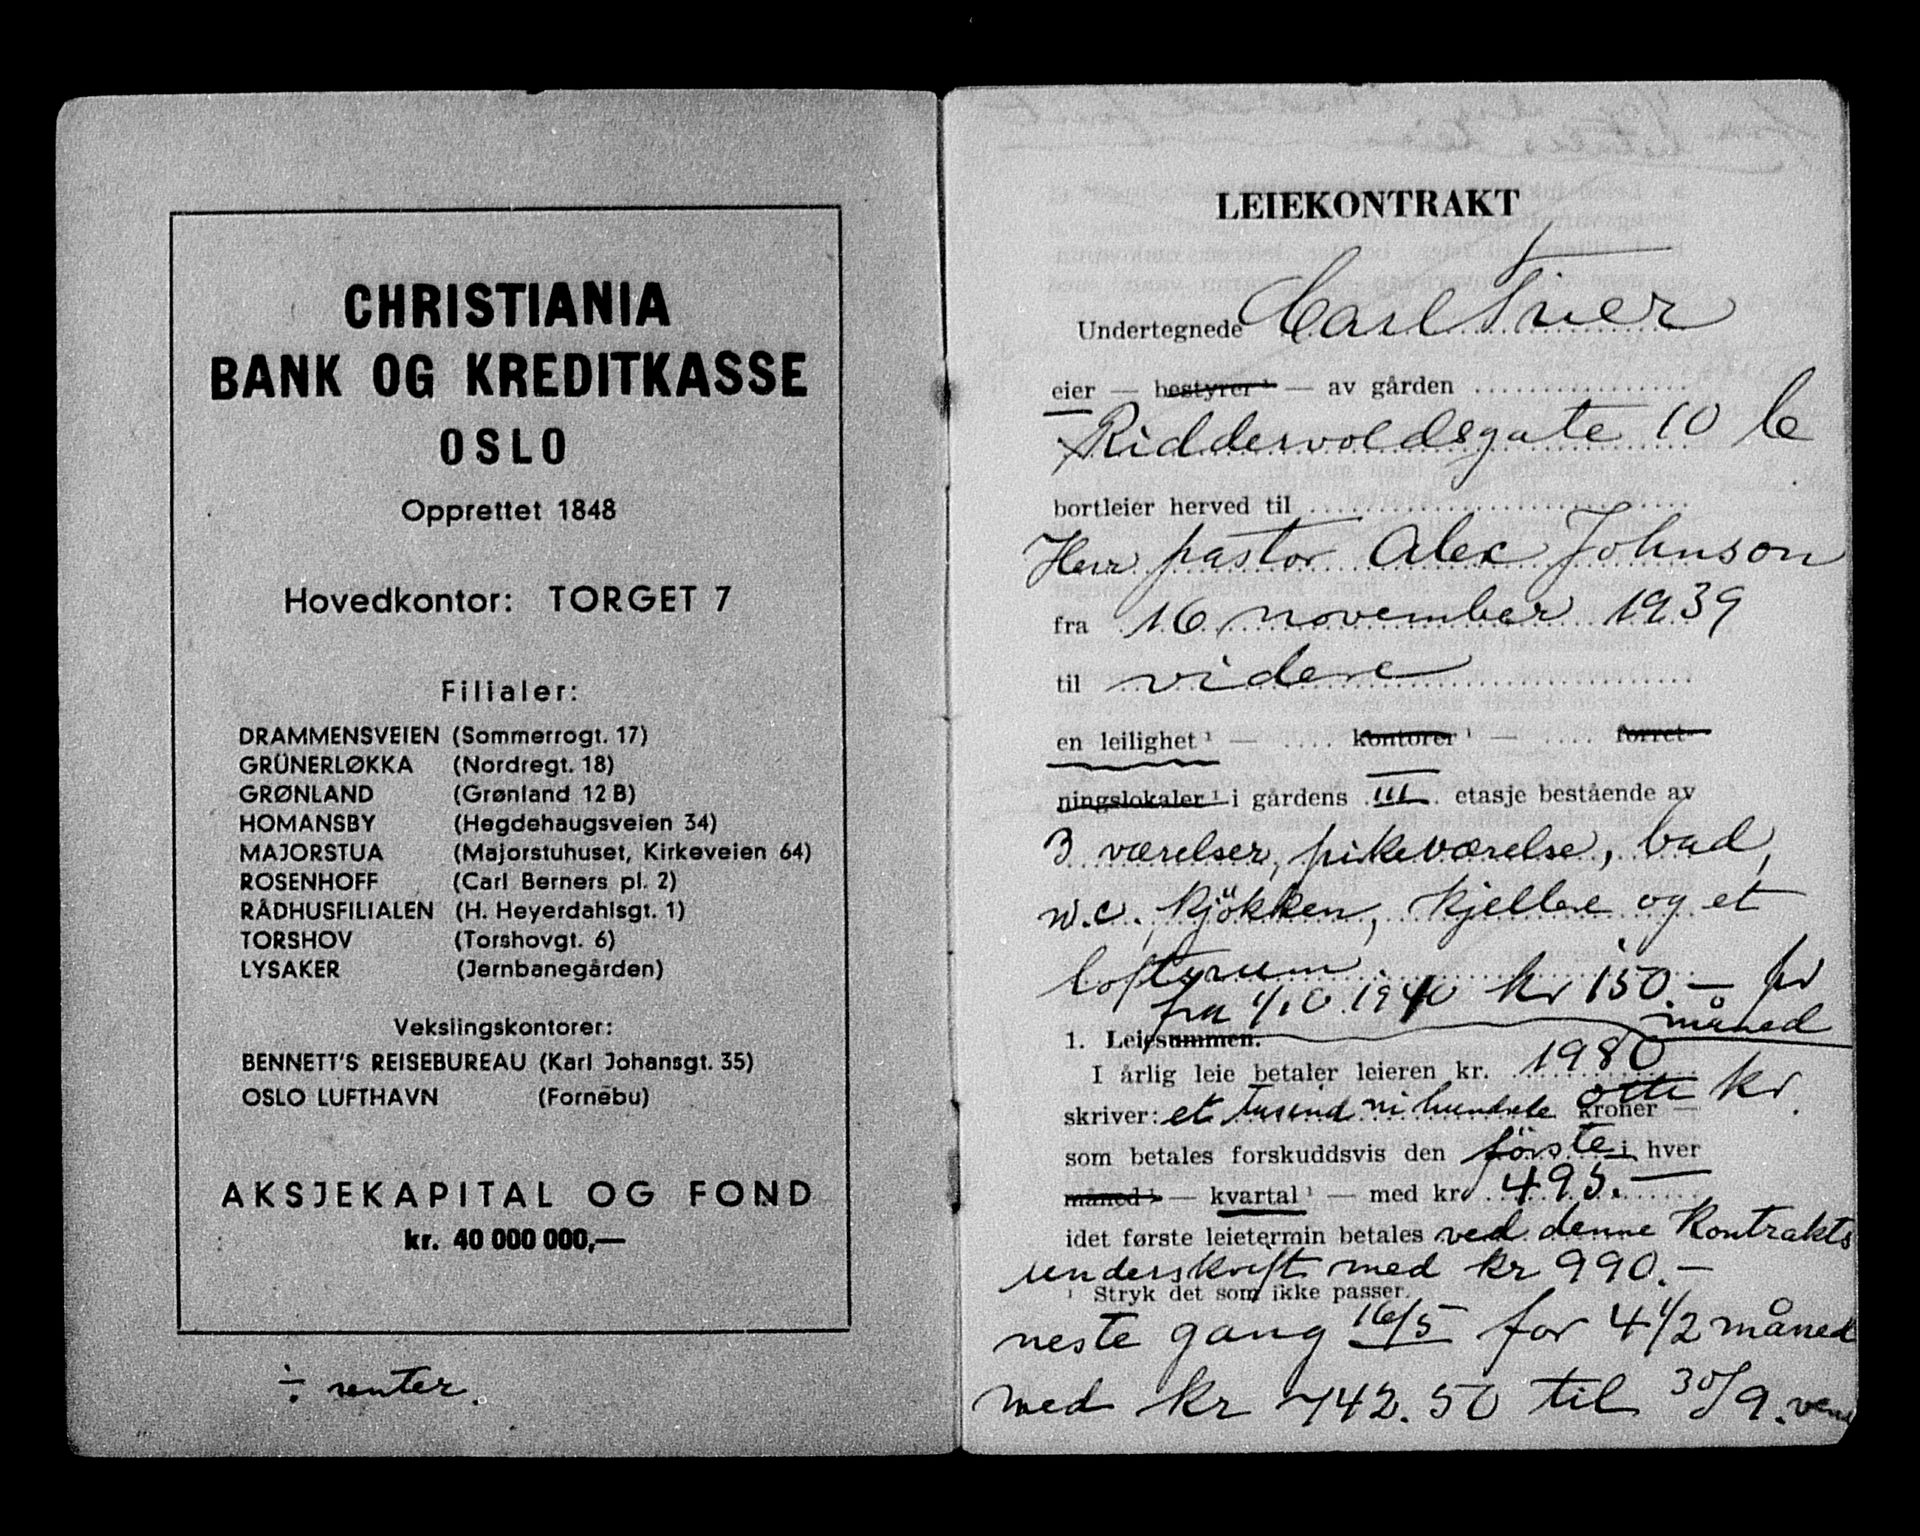 CHRISTIANIA
BANK OG KREDITKASSE
OSLO
Opprettet 1848
Hovedkontor: TORGET 7
Filialer:
DRAMMENSVEIEN (Sommerrogt. 17)
GRÜNERLØKKA (Nordregt. 18)
GRØNLAND (Grønland 12 B)
HOMANSBY (Hegdehaugsveien 34)
MAJORSTUA (Majorstuhuset, Kirkeveien 64)
ROSENHOFF (Carl Berners pl. 2)
RÅDHUSFILIALEN (H. Heyerdahlsgt. 1)
TORSHOV (Torshovgt. 6)
LYSAKER (Jernbanegården)
Vekslingskontorer:
BENNETT'S REISEBUREAU (Karl Johansgt. 35)
OSLO LUFTHAVN (Fornebu)
AKSJEKAPITAL OG FOND
kr. 40 000 000,—
÷ renter.
LEIEKONTRAKT
Undertegnede Carl Trier
eier — bestyrer ¹ — av gården
Riddervoldsgate 10 b
bortleier herved til
Herr pastor Alex Johnson
fra 16 november 1939
til videre
en leilighet ¹ — .... kontorer ¹ — .... forret-
ningslokaler ¹ i gårdens III etasje bestående av
3 værelser, pikeværelse, bad,
w.c. kjökken, kjeller og et
loftsrum
fra 1/10 1940 kr 150.— pr
måned
1. Leiesummen.
I årlig leie betaler leieren kr. 1980
skriver: et tusind ni hundrede otti kr. kroner —
som betales forskuddsvis den förste i hver
måned ¹ — kvartal ¹ — med kr. 495.—
idet første leietermin betales ved denne Kontrakts
underskrift med kr 990.—
¹ Stryk det som ikke passer.
neste gang 16/5 for 4 1/2 måned
med kr 742.50 til 30/9.